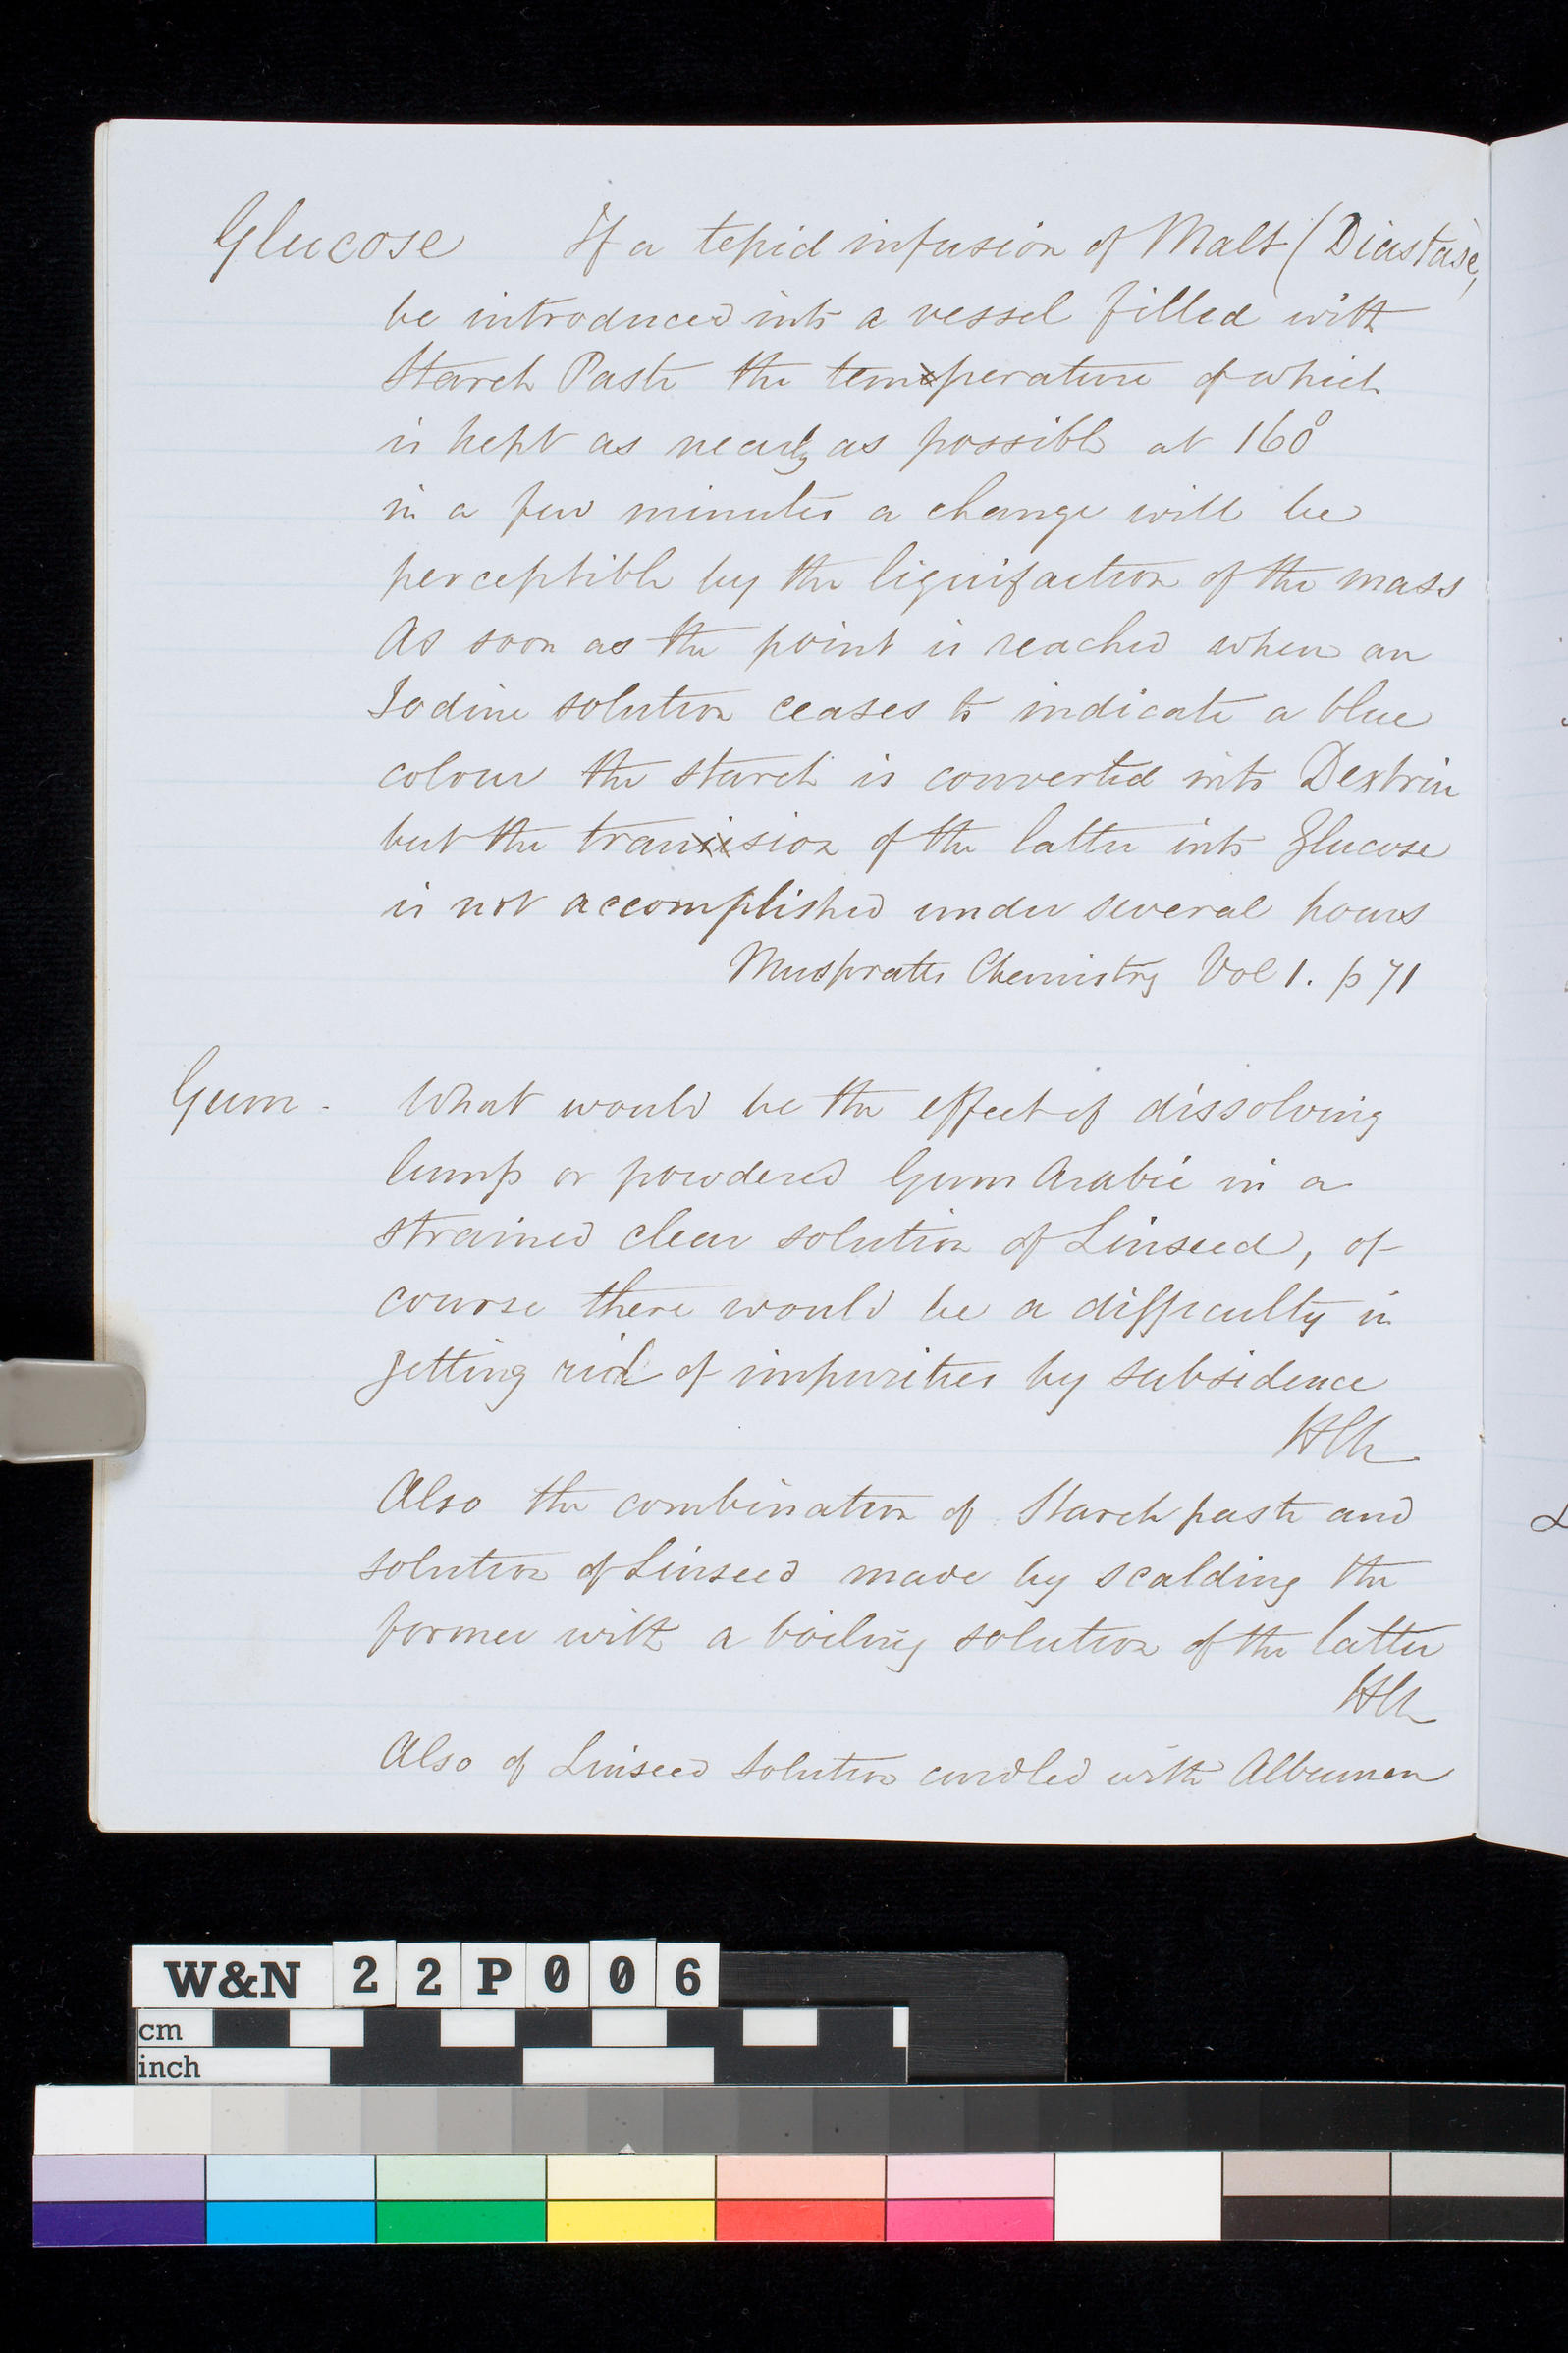 Glucose If a tepid infusion of Malt (Diastase)
be introduced into a vessel filled with
Starch Paste the temperature of which
is kept as nearly as possible at 160°
in a few minutes a change will be
perceptible by the liquifaction of the mass
As soon as the point is reached when an
Iodine solution ceases to indicate a blue
colour the starch is converted into Dextrin
but the transision of the latter into Glucose
is not accomplished under several hours
Muspratts Chemistry Vol 1. p 71
Gum - What would be the effect of dissolving
lump or powdered Gum Arabic in a
strained clear solution of Linseed, of
course there would be a difficulty in
getting rid of impurities by subsidence
Also the combination of Starch paste and
solution of Linseed made by scalding the
former with a boiling solution of the latter
Also of Linseed Solution curdled with Albumen
W&N 22P006
cm
inch